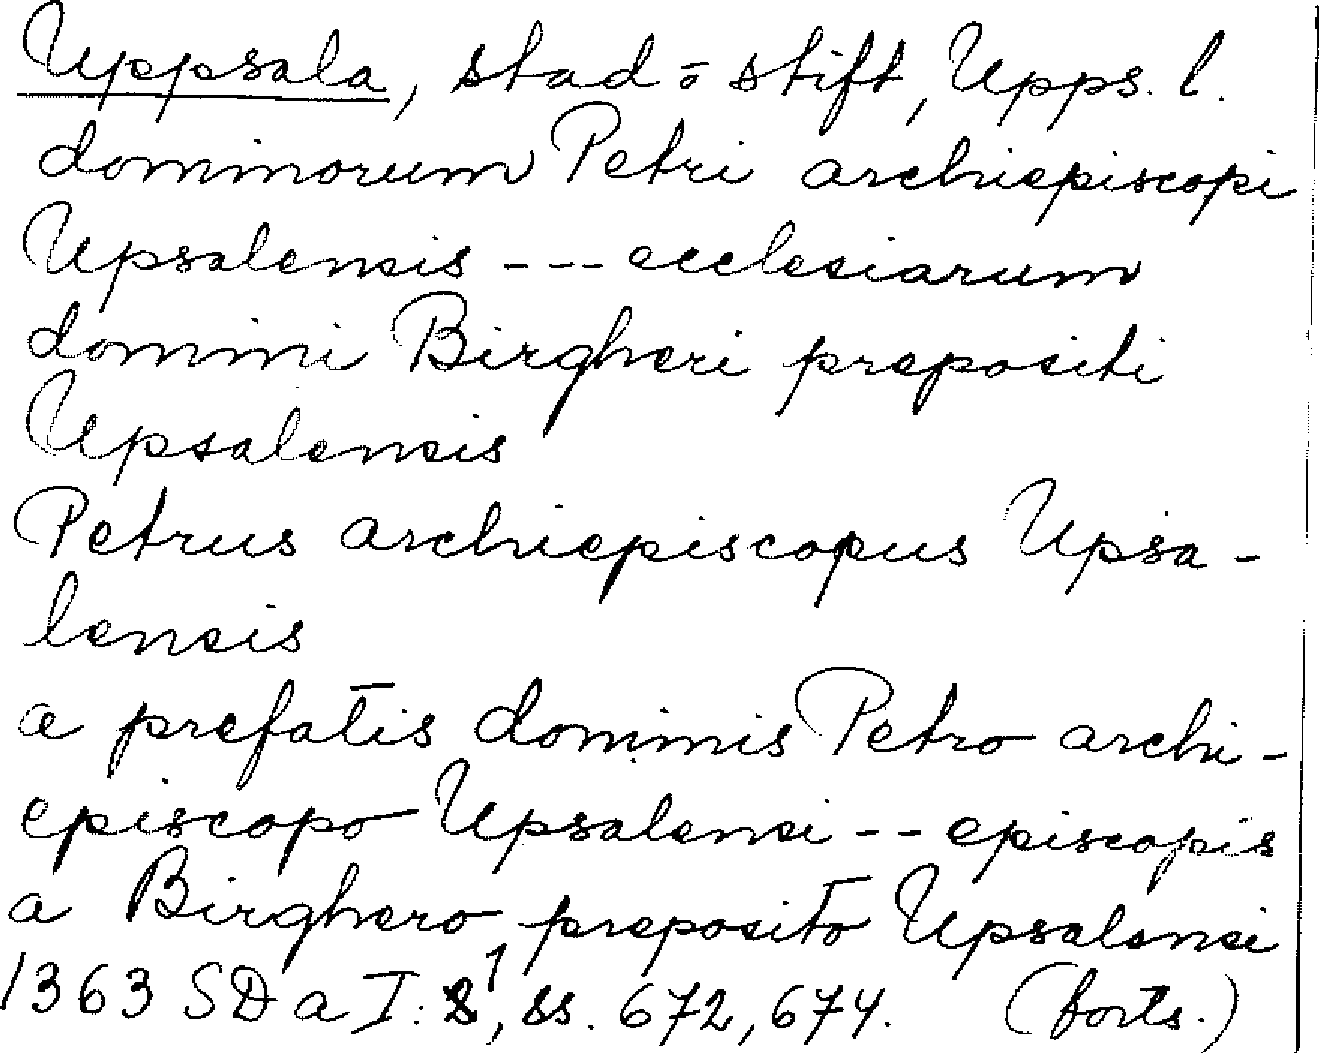 Uppsala, stad o stift, Upps. l.
dominorum Petri archiepiscopi
Upsalensis --- ecclesiarum
domini Birgheri prepositi
Upsalensis
Petrus archiepiscopus Upsa-
lensis
a prefatis dominis Petro archi-
episcopo Upsalensi -- episcopis
a Birghero preposito Upsalensi
1363 SD a I: 1, ss. 672, 674. (forts.)